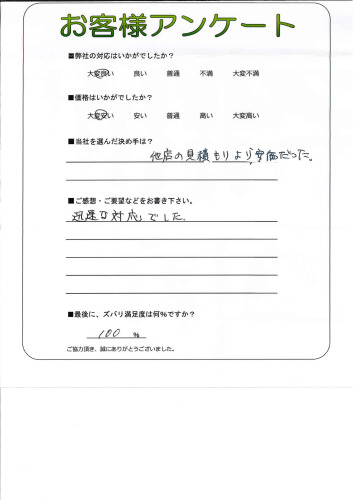 お客様アンケート
■弊社の対応はいかがでしたか？
大変良い 良い 普通 不満 大変不満
■価格はいかがでしたか？
大変安い 安い 普通 高い 大変高い
■当社を選んだ決め手は？
他店の見積もりより安価だった。
■ご感想・ご要望などをお書き下さい。
迅速な対応でした。
■最後に、ズバリ満足度は何％ですか？
100 ％
ご協力頂き、誠にありがとうございました。